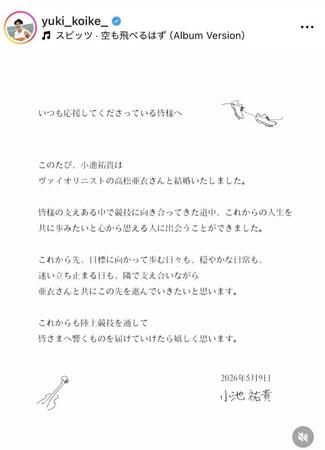 yuki_koike_
スピッツ・空も飛べるはず (Album Version)
いつも応援してくださっている皆様へ
このたび、小池祐貴は
ヴァイオリニストの高松亜衣さんと結婚いたしました。
皆様の支えある中で競技に向き合ってきた道中、これからの人生を
共に歩みたいと心から思える人に出会うことができました。
これから先、目標に向かって歩む日々も、穏やかな日常も、
迷い立ち止まる日も、隣で支え合いながら
亜衣さんと共にこの先を進んでいきたいと思います。
これからも陸上競技を通して
皆さまへ響くものを届けていけたら嬉しく思います。
2026年5月9日
小池祐貴